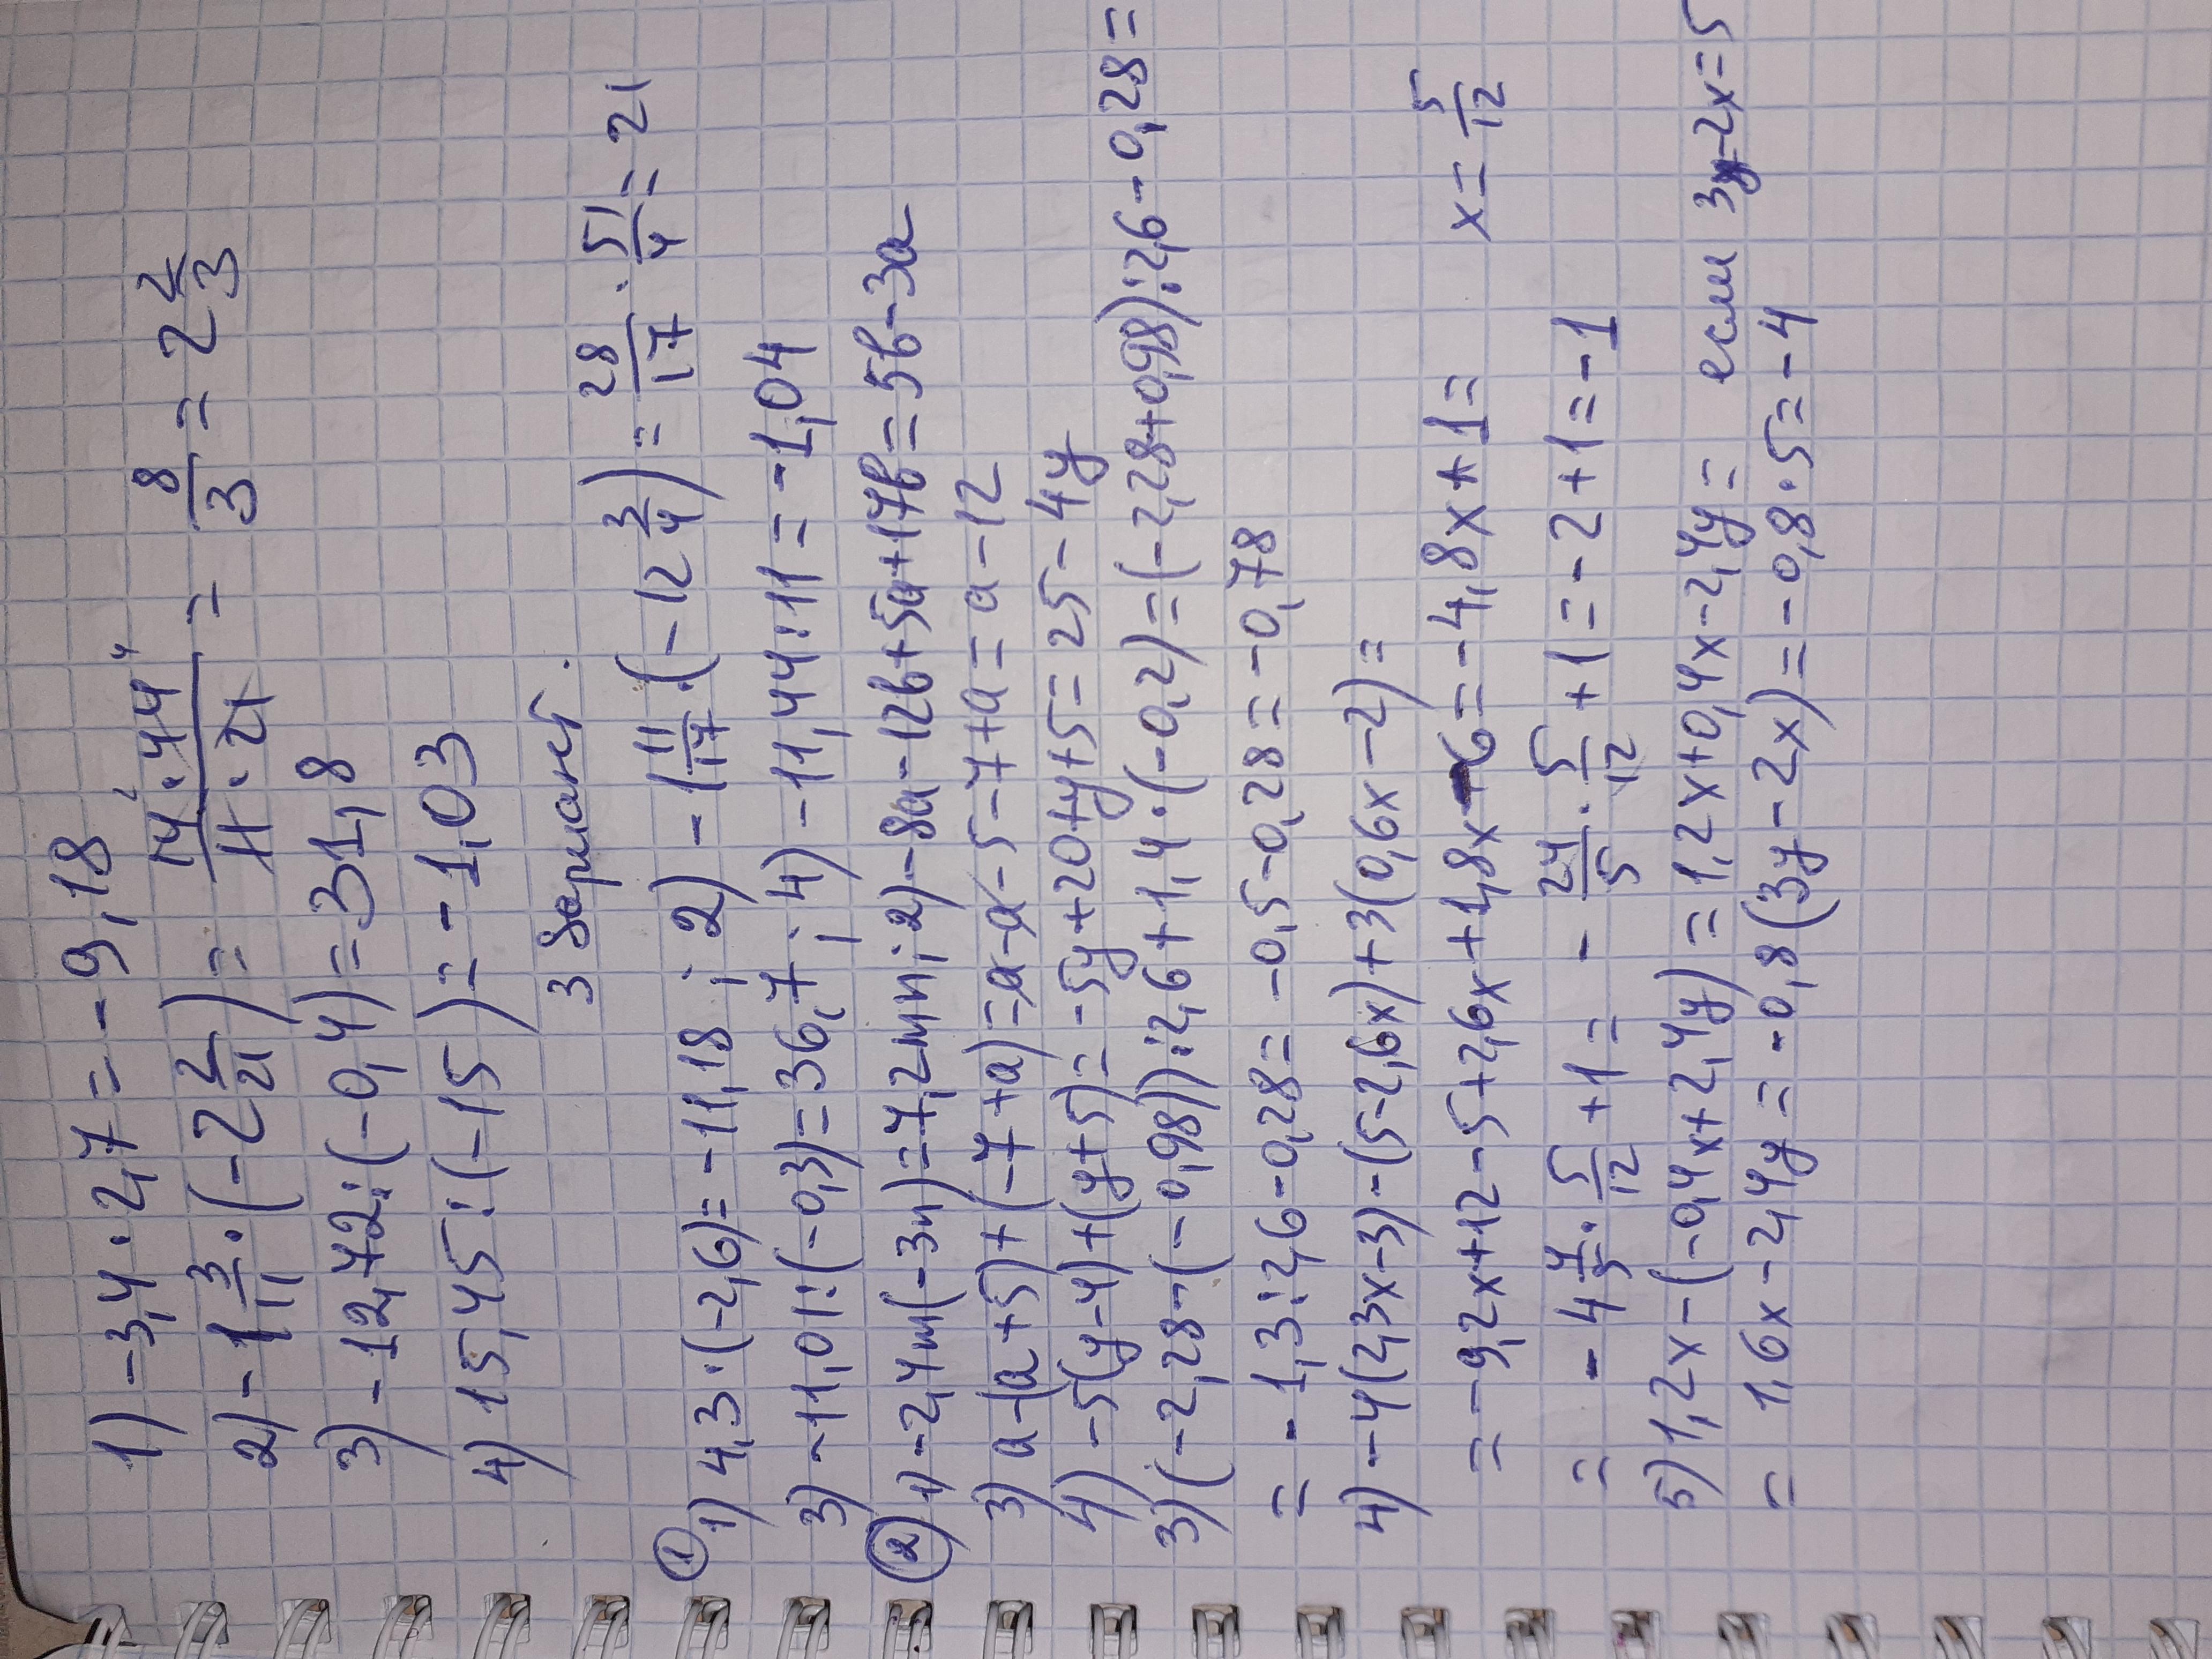 1) -3,4 · 2,7 = -9,18
2) -1 3/11 · (-2 2/21) = 14² · 44⁴ / 11 · 21 = 8/3 = 2 2/3
3) -12,72 : (-0,4) = 31,8
4) 15,45 : (-15) = -1,03
3 вариант.
① 1) 4,3 · (-2,6) = -11,18 ; 2) -1 11/17 · (-12 3/4) = 28/17 · 51/4 = 21
3) -11,01 : (-0,3) = 36,7 ; 4) -11,44 : 11 = -1,04
② 1) -2,4m(-3n) = 7,2mn ; 2) -8a-12b+5a+17b = 5b-3a
3) a-(a+5)+(-7+a) = a-a-5-7+a = a-12
4) -5(y-4)+(y+5) = -5y+20+y+5 = 25-4y
3) (-2,28-(-0,98)) : 2,6+1,4·(-0,2) = (-2,28+0,98) : 2,6-0,28 =
= -1,3 : 2,6-0,28 = -0,5-0,28 = -0,78
4) -4(2,3x-3)-(5-2,6x)+3(0,6x-2) =
= -9,2x+12-5+2,6x+1,8x-6 = -4,8x+1 = x = 5/12
= -4 4/5 · 5/12 +1 = - 24/5 · 5/12 +1 = -2+1 = -1
5) 1,2x-(-0,4x+2,4y) = 1,2x+0,4x-2,4y = если 3y-2x=5
= 1,6x-2,4y = -0,8(3y-2x) = -0,8·5 = -4